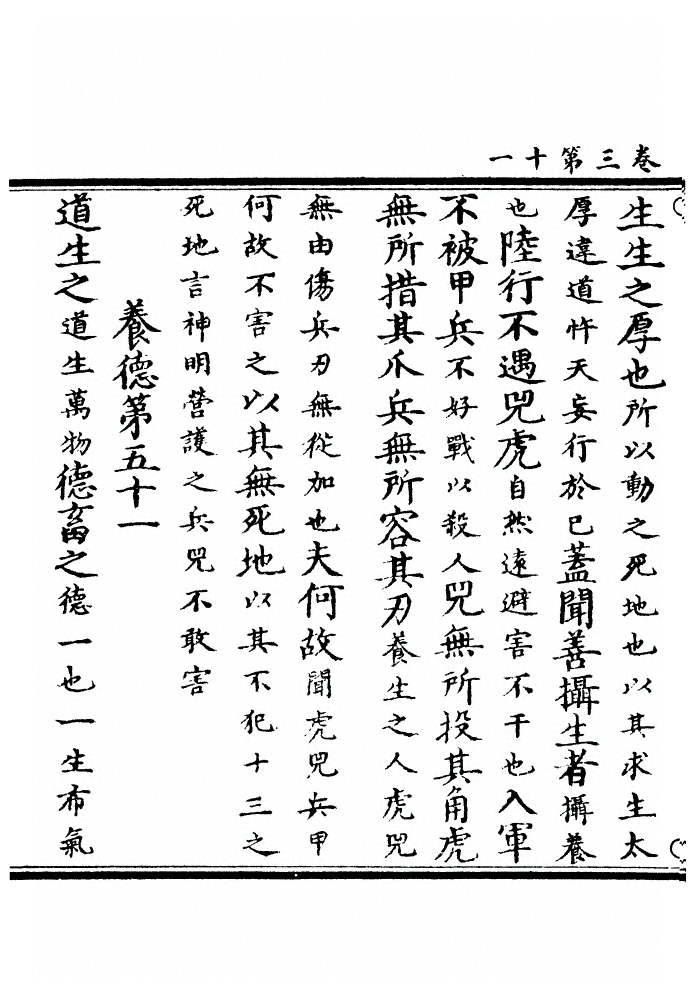 卷三第十一
生生之厚也所以動之死地也以其求生太
厚違道忤天妄行於已蓋聞善攝生者攝養
也陸行不遇兕虎自然遠避害不干也入軍
不被甲兵不好戰以殺人兕無所投其角虎
無所措其爪兵無所容其刃養生之人虎兕
無由傷兵刃無從加也夫何故聞虎兕兵甲
何故不害之以其無死地以其不犯十三之
死地言神明營護之兵兕不敢害
養德第五十一
道生之道生萬物德畜之德一也一生布氣